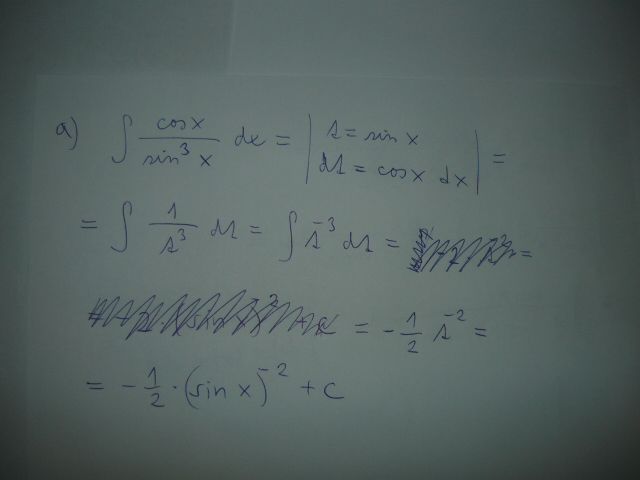 a) ∫ cosx / sin³x dx = | s = sin x
ds = cosx dx | =
= ∫ 1/s³ ds = ∫ s⁻³ ds = =
= -1/2 s⁻² =
= -1/2 · (sin x)⁻² + c